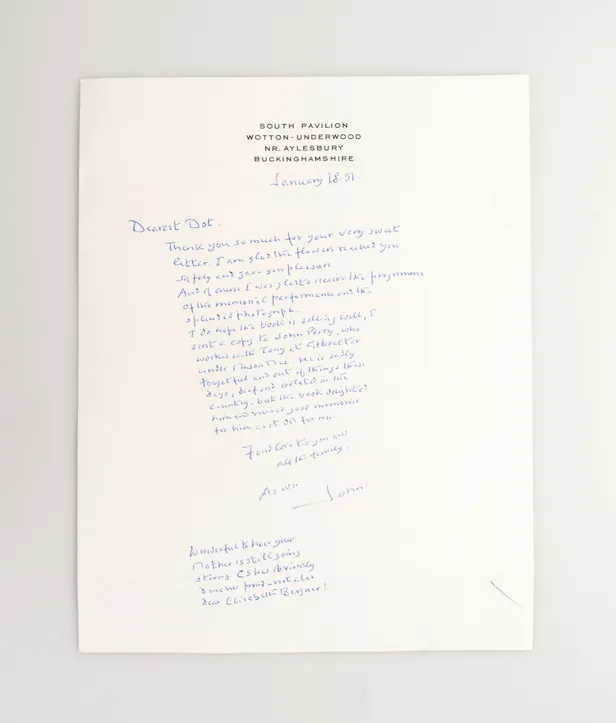 SOUTH PAVILION
WOTTON-UNDERWOOD
NR. AYLESBURY
BUCKINGHAMSHIRE
January 18. 91.
Dearest Dot.
Thank you so much for your very sweet
letter. I am glad the flowers reached you
safely and gave you pleasure.
And of course I was glad to receive the programme
of the memorial performance and the
splendid photograph.
I do hope the book is selling well, I
sent a copy to John Perry, who
worked with Tony at Gibraltar
under Mason Mac. He is sadly
forgetful and out of things these
days, deaf and isolated in the
country, but the book delighted
him and revived good memories
for him as it did for me.
Fond love to you and
all the family.
As ever
John.
Wonderful to hear your
Mother is still going
strong. CS has obviously
proud
dear Elisabeth Bergner!